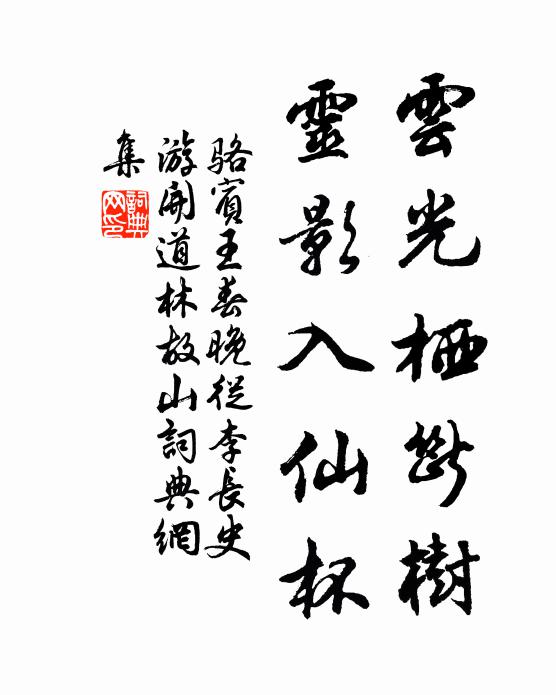 雲光栖斷樹
靈影入仙杯
駱賓王春晚從李長史
游開道林故山詞典網
集
詞典網印